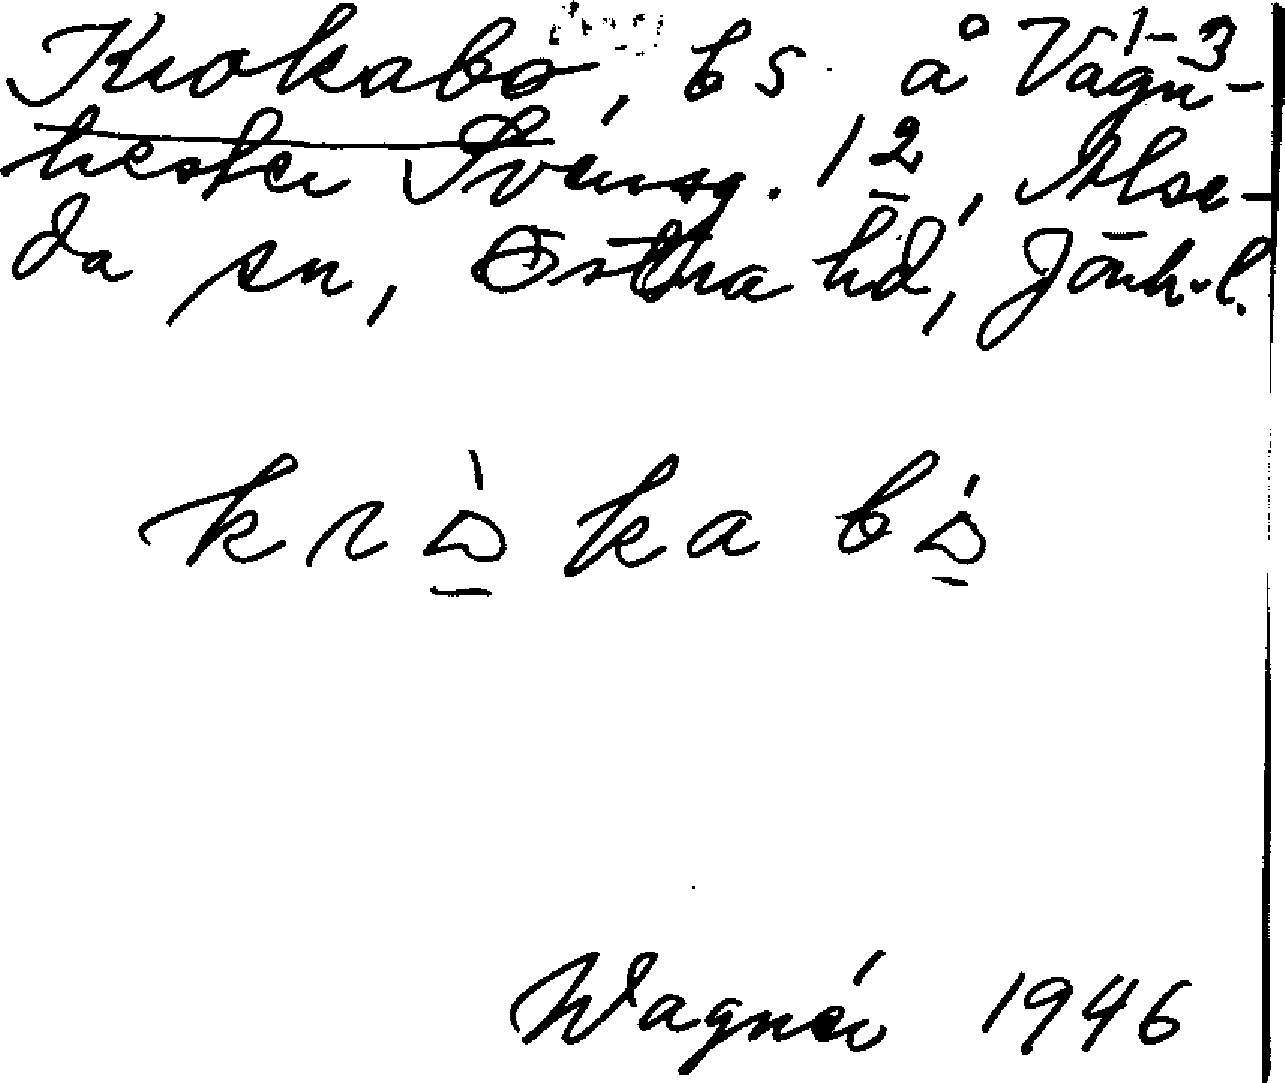 Krokabo, bs å Vagn-
hester Svensg. 1² 1-3, Alse-
da sn, Östra hd, Jönk. l.
kròkabó
Wagnér 1946